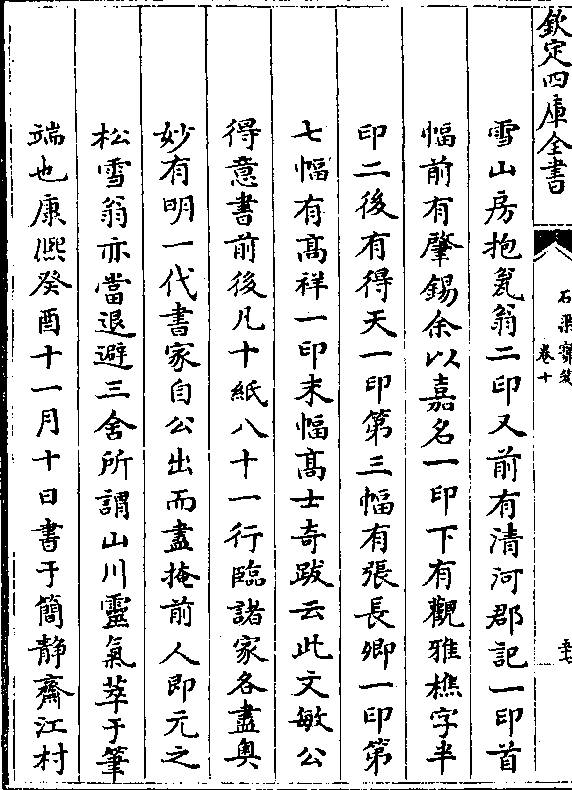 欽定四庫全書
石渠寶笈
卷十
雪山房抱甕翁二印又前有清河郡記一印首
幅前有肇錫余以嘉名一印下有觀雅樵字半
印二後有得天一印第三幅有張長卿一印第
七幅有高祥一印末幅高士奇跋云此文敏公
得意書前後凡十紙八十一行臨諸家各盡奧
妙有明一代書家自公出而盡掩前人即元之
松雪翁亦當退避三舍所謂山川靈氣萃于筆
端也康熙癸酉十一月十日書于簡靜齋江村